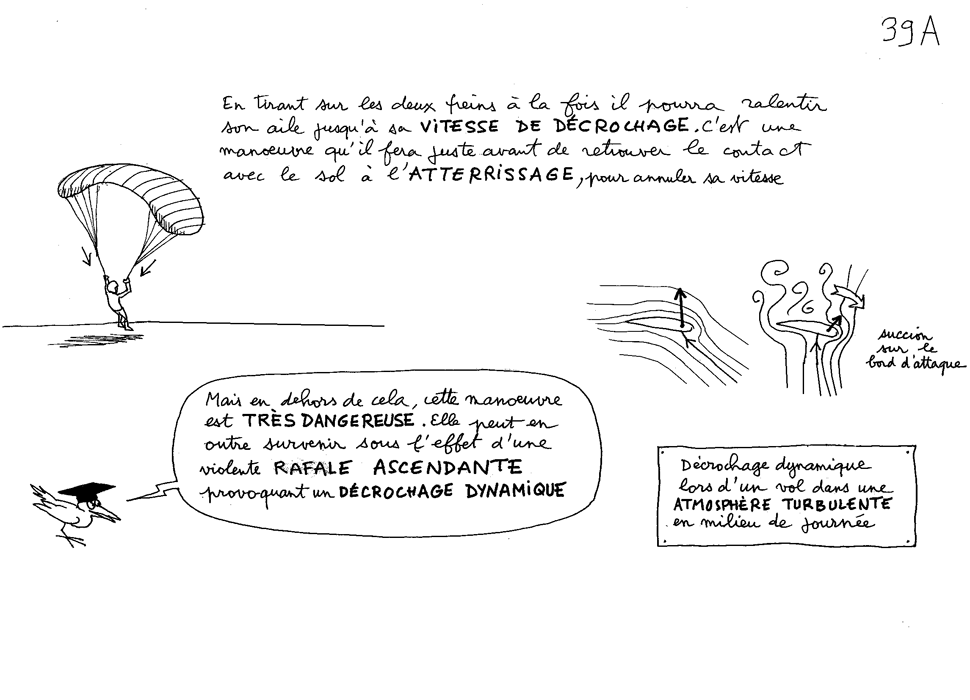 39A
En tirant sur les deux freins à la fois il pourra ralentir
son aile jusqu'à sa VITESSE DE DÉCROCHAGE. C'est une
manoeuvre qu'il fera juste avant de retrouver le contact
avec le sol à l'ATTERRISSAGE, pour annuler sa vitesse
succion
sur le
bord d'attaque
Mais en dehors de cela, cette manoeuvre
est TRÈS DANGEREUSE. Elle peut en
outre survenir sous l'effet d'une
violente RAFALE ASCENDANTE
provoquant un DÉCROCHAGE DYNAMIQUE
Décrochage dynamique
lors d'un vol dans une
ATMOSPHÈRE TURBULENTE
en milieu de journée